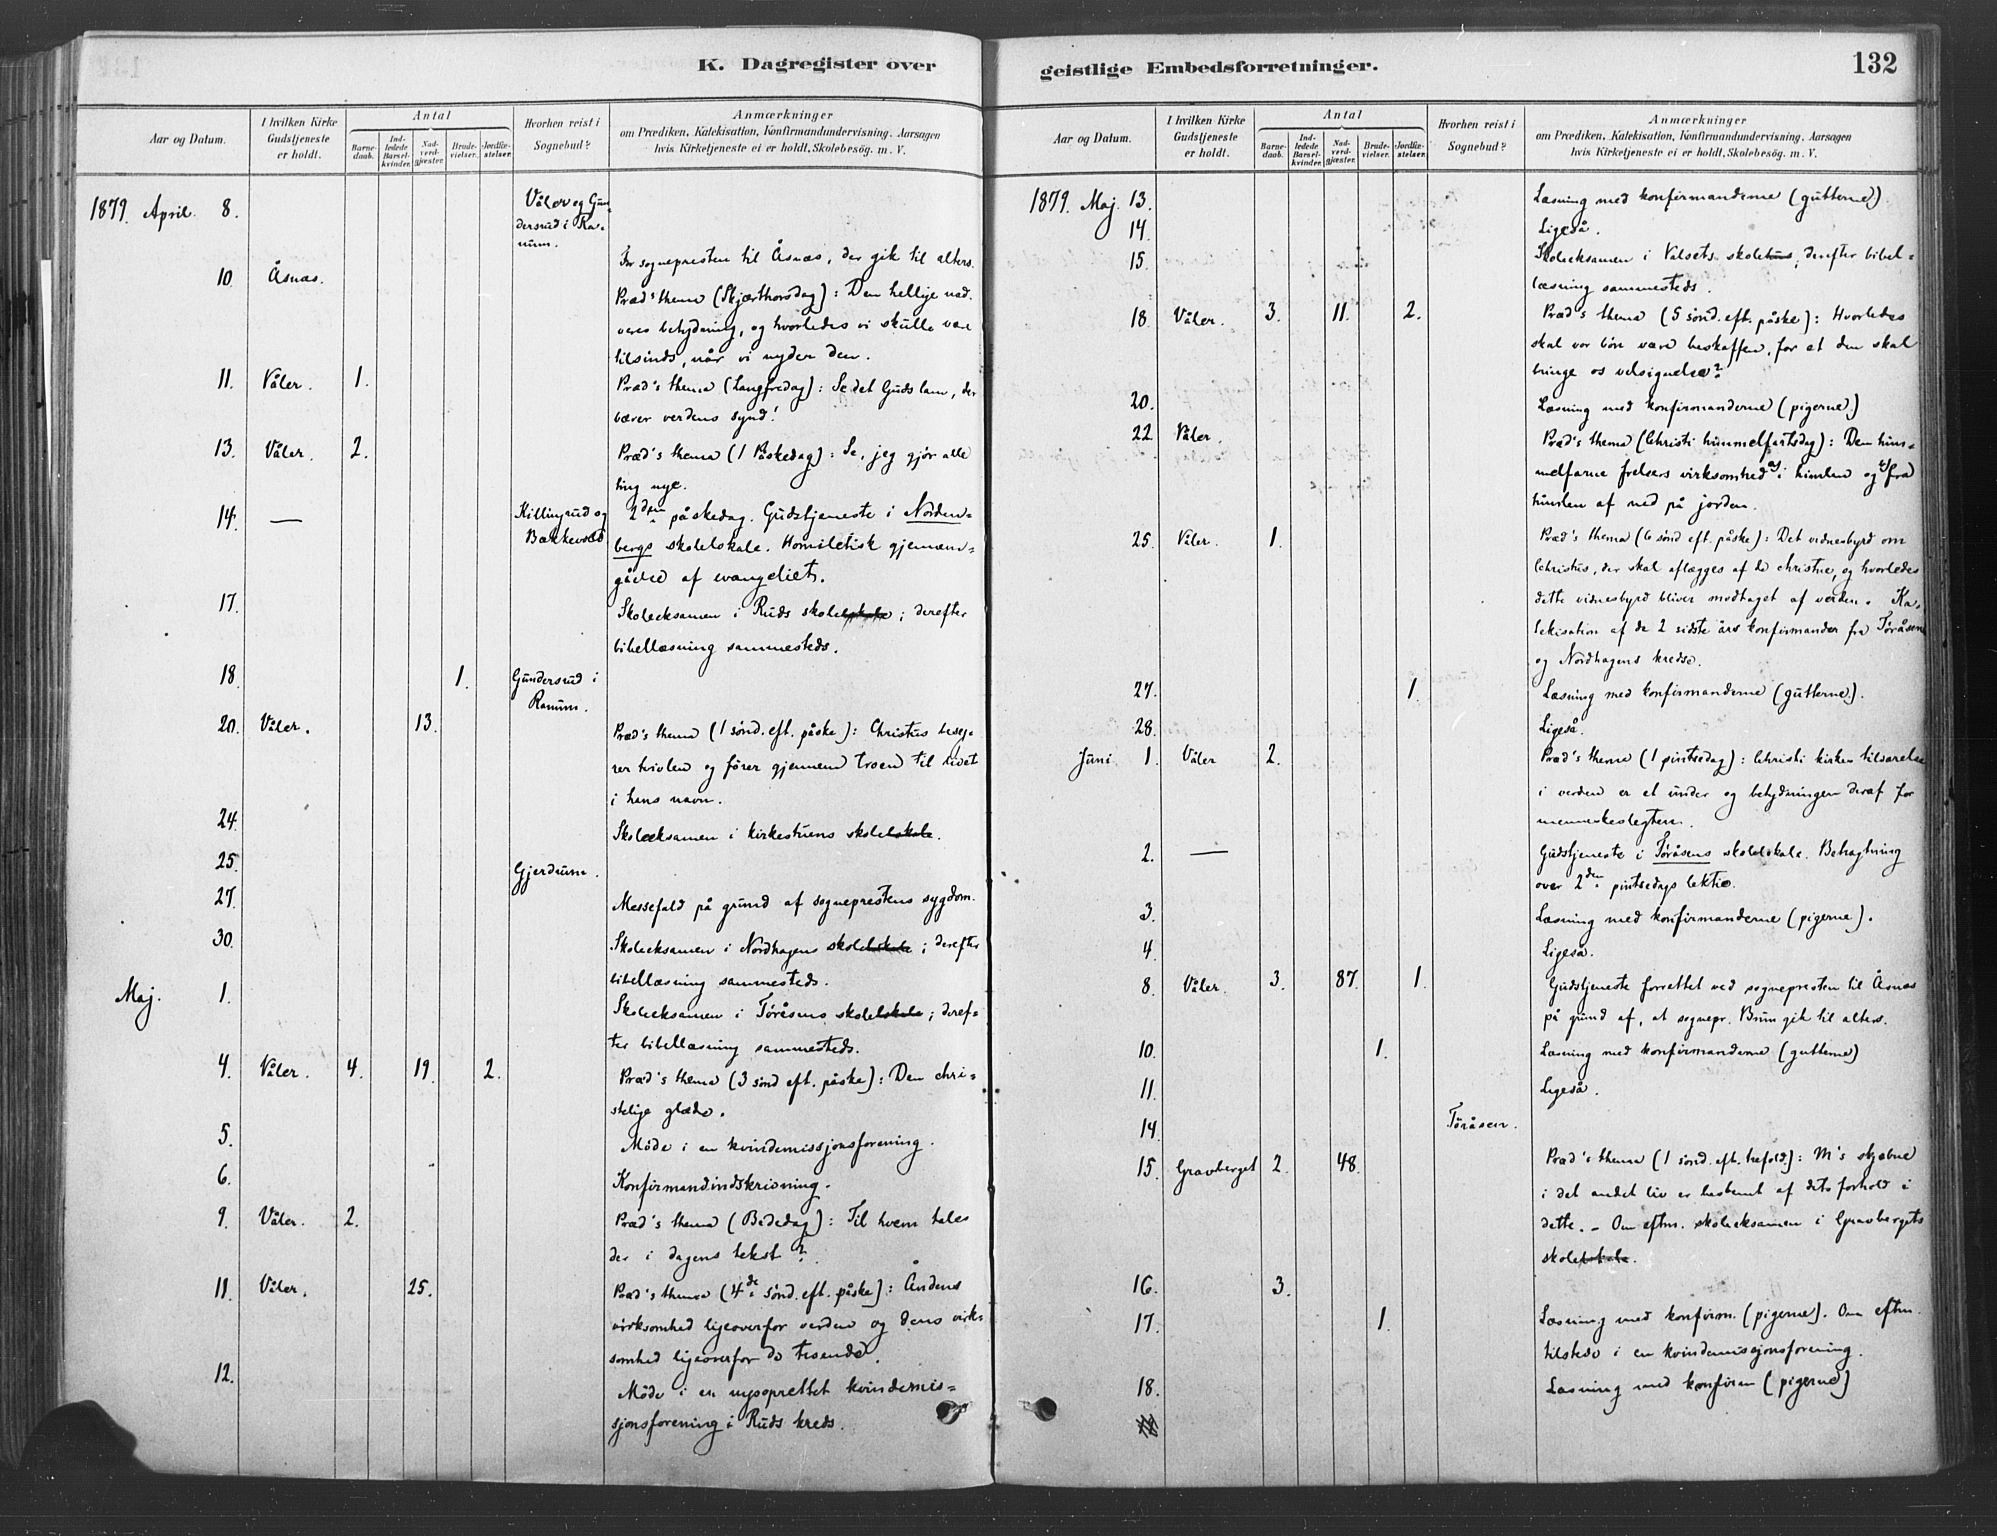 K. Dagregister over
Aar og Datum.
I hvilken Kirke Gudstjeneste er holdt.
Antal
Barnedaab.
Indledede Barselkvinder.
Nadverdgjæster.
Brudevielser.
Jordfæstelser.
Hvorhen reist i Sognebud?
Anmærkninger
om Prædiken, Katekisation, Konfirmandundervisning. Aarsagen
hvis Kirketjeneste ei er holdt, Skolebesøg. m. V.
1879. April. 8. Våler og Gun-
dersrud i Ra-
num.
10. Åsnæs. For sognepresten til Åsnæs, der gik til alters.
Præd's thema (Skjærthorsdag): Den hellige nad-
veres betydning, og hvorledes vi skulle være
tilsinds, når vi nyder den.
11. Våler. 1. Præd's thema (Langfredag): Se det Guds lam, der
bærer verdens synd!
13. Våler. 2. Præd's thema (1 Påskedag): Se, jeg gjør alle
ting nye.
14. — Killingrud og
Bækkevold 2den påskedag. Gudstjeneste i Norden-
bergs skolelokale. Homiletisk gjennem-
gåelse af evangeliet.
17. Skoleeksamen i Ruds skolelokale; derefter
bibellæsning sammesteds.
18. 1. Gundersrud i
Ranum.
20. Våler. 13. Præd's thema (1 sønd. eft. påske): Christus besej-
rer tvivlen og fører gjennem troen til livet
i hans navn.
24. Skoleeksamen i kirkestuens skolelokale.
25. Gjerdrum.
27. Messefald på grund af sogneprestens sygdom.
30. Skoleeksamen i Nordhagens skolelokale; derefter
bibellæsning sammesteds.
Maj. 1. Skoleeksamen i Toråsens skolelokale; deref-
ter bibellæsning sammesteds.
4. Våler. 4. 19. 2. Præd's thema (3 sønd eft. påske): Den chri-
stelige glæde.
5. Møde i en kvindemissjonsforening.
6. Konfirmandindskrivning.
9. Våler. 2. Præd's thema (Bededag): Til hvem tales
der i dagens tekst?
11. Våler. 25. Præd's thema (4de sønd. eft. påske): Åndens
virksomhed ligeoverfor verden og dens virk-
somhed ligeoverfor de troende.
12. Møde i en nysoprettet kvindemis-
sjonsforening i Ruds kreds.
geistlige Embedsforretninger.
132
Aar og Datum.
I hvilken Kirke Gudstjeneste er holdt.
Antal
Barnedaab.
Indledede Barselkvinder.
Nadverdgjæster.
Brudevielser.
Jordfæstelser.
Hvorhen reist i Sognebud?
Anmærkninger
om Prædiken, Katekisation, Konfirmandundervisning. Aarsagen
hvis Kirketjeneste ei er holdt, Skolebesøg. m. V.
1879. Maj. 13. Læsning med konfirmanderne (gutterne).
14. Ligeså.
15. Skoleeksamen i Valsets skolehus, derefter bibel-
læsning sammesteds.
18. Våler. 3. 11. 2. Præd's thema (5 sønd. eft. påske): Hvorledes
skal vor bøn være beskaffen, for at den skal
bringe os velsignelse?
20. Læsning med konfirmanderne (pigerne.)
22. Våler. Præd's thema (Christi himmelfartsdag): Den him-
melfarne frelsers virksomhed i himlen og fra
himlen af ned på jorden.
25. Våler. 1. Præd's thema (6 sønd eft. påske): Det vidnesbyrd om
Christus, der skal aflægges af de christne, og hvorledes
dette vidnesbyrd bliver modtaget af verden. Ka-
tekisation af de 2 sidste års konfirmander fra Toråsens
og Nordhagens kredse.
27. 1. Læsning med konfirmanderne (gutterne).
28. Ligeså.
Juni 1. Våler 2. Præd's thema (1 pintsedag): Christi kirkes tilværelse
i verden er et under og betydningen deraf for
menneskeslegten.
2. — Gudstjeneste i Toråsens skolelokale. Betragtning
over 2den pintsedags lektie.
3. Læsning med konfirmanderne (pigerne).
4. Ligeså.
8. Våler. 3. 87. 1. Gudstjeneste forrettet ved sognepresten til Åsnæs
på grund af, at sognepr. Brun gik til alters.
10. 1. Læsning med konfirmanderne (gutterne)
11. Ligeså.
14. Toråsen.
15. Gravberget 2. 48. Præd's thema (1 sønd. eft. trefold.): M's skjæbne
i det andet liv er bestemt af dets forhold i
dette. – Om eftm. skoleeksamen i Gravbergets
skolelokale.
16. 3.
17. 1. Læsning med konfirm. (pigerne). Om eftm.
tilstede i en kvindemissjonsforening.
18. Læsning med konfirm (pigerne)